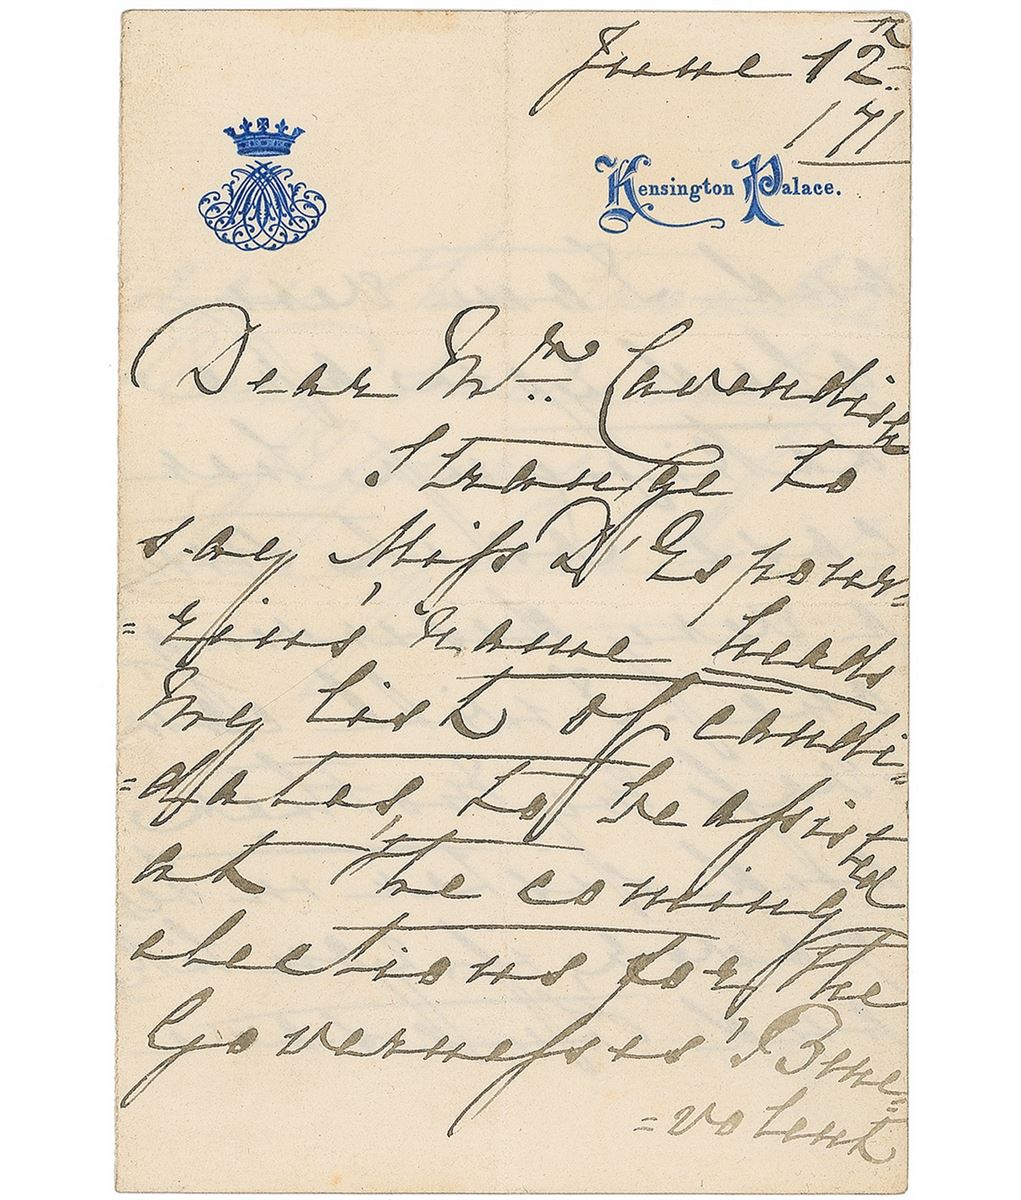 June 12th
/71
Kensington Palace.
Dear Mr. Cavendish
Strange to
say, Miss D'Espour=
=rins' name heads
My list of candi=
=dates, to be assisted
at the coming
elections for the
Governesses' Bene=
=volent